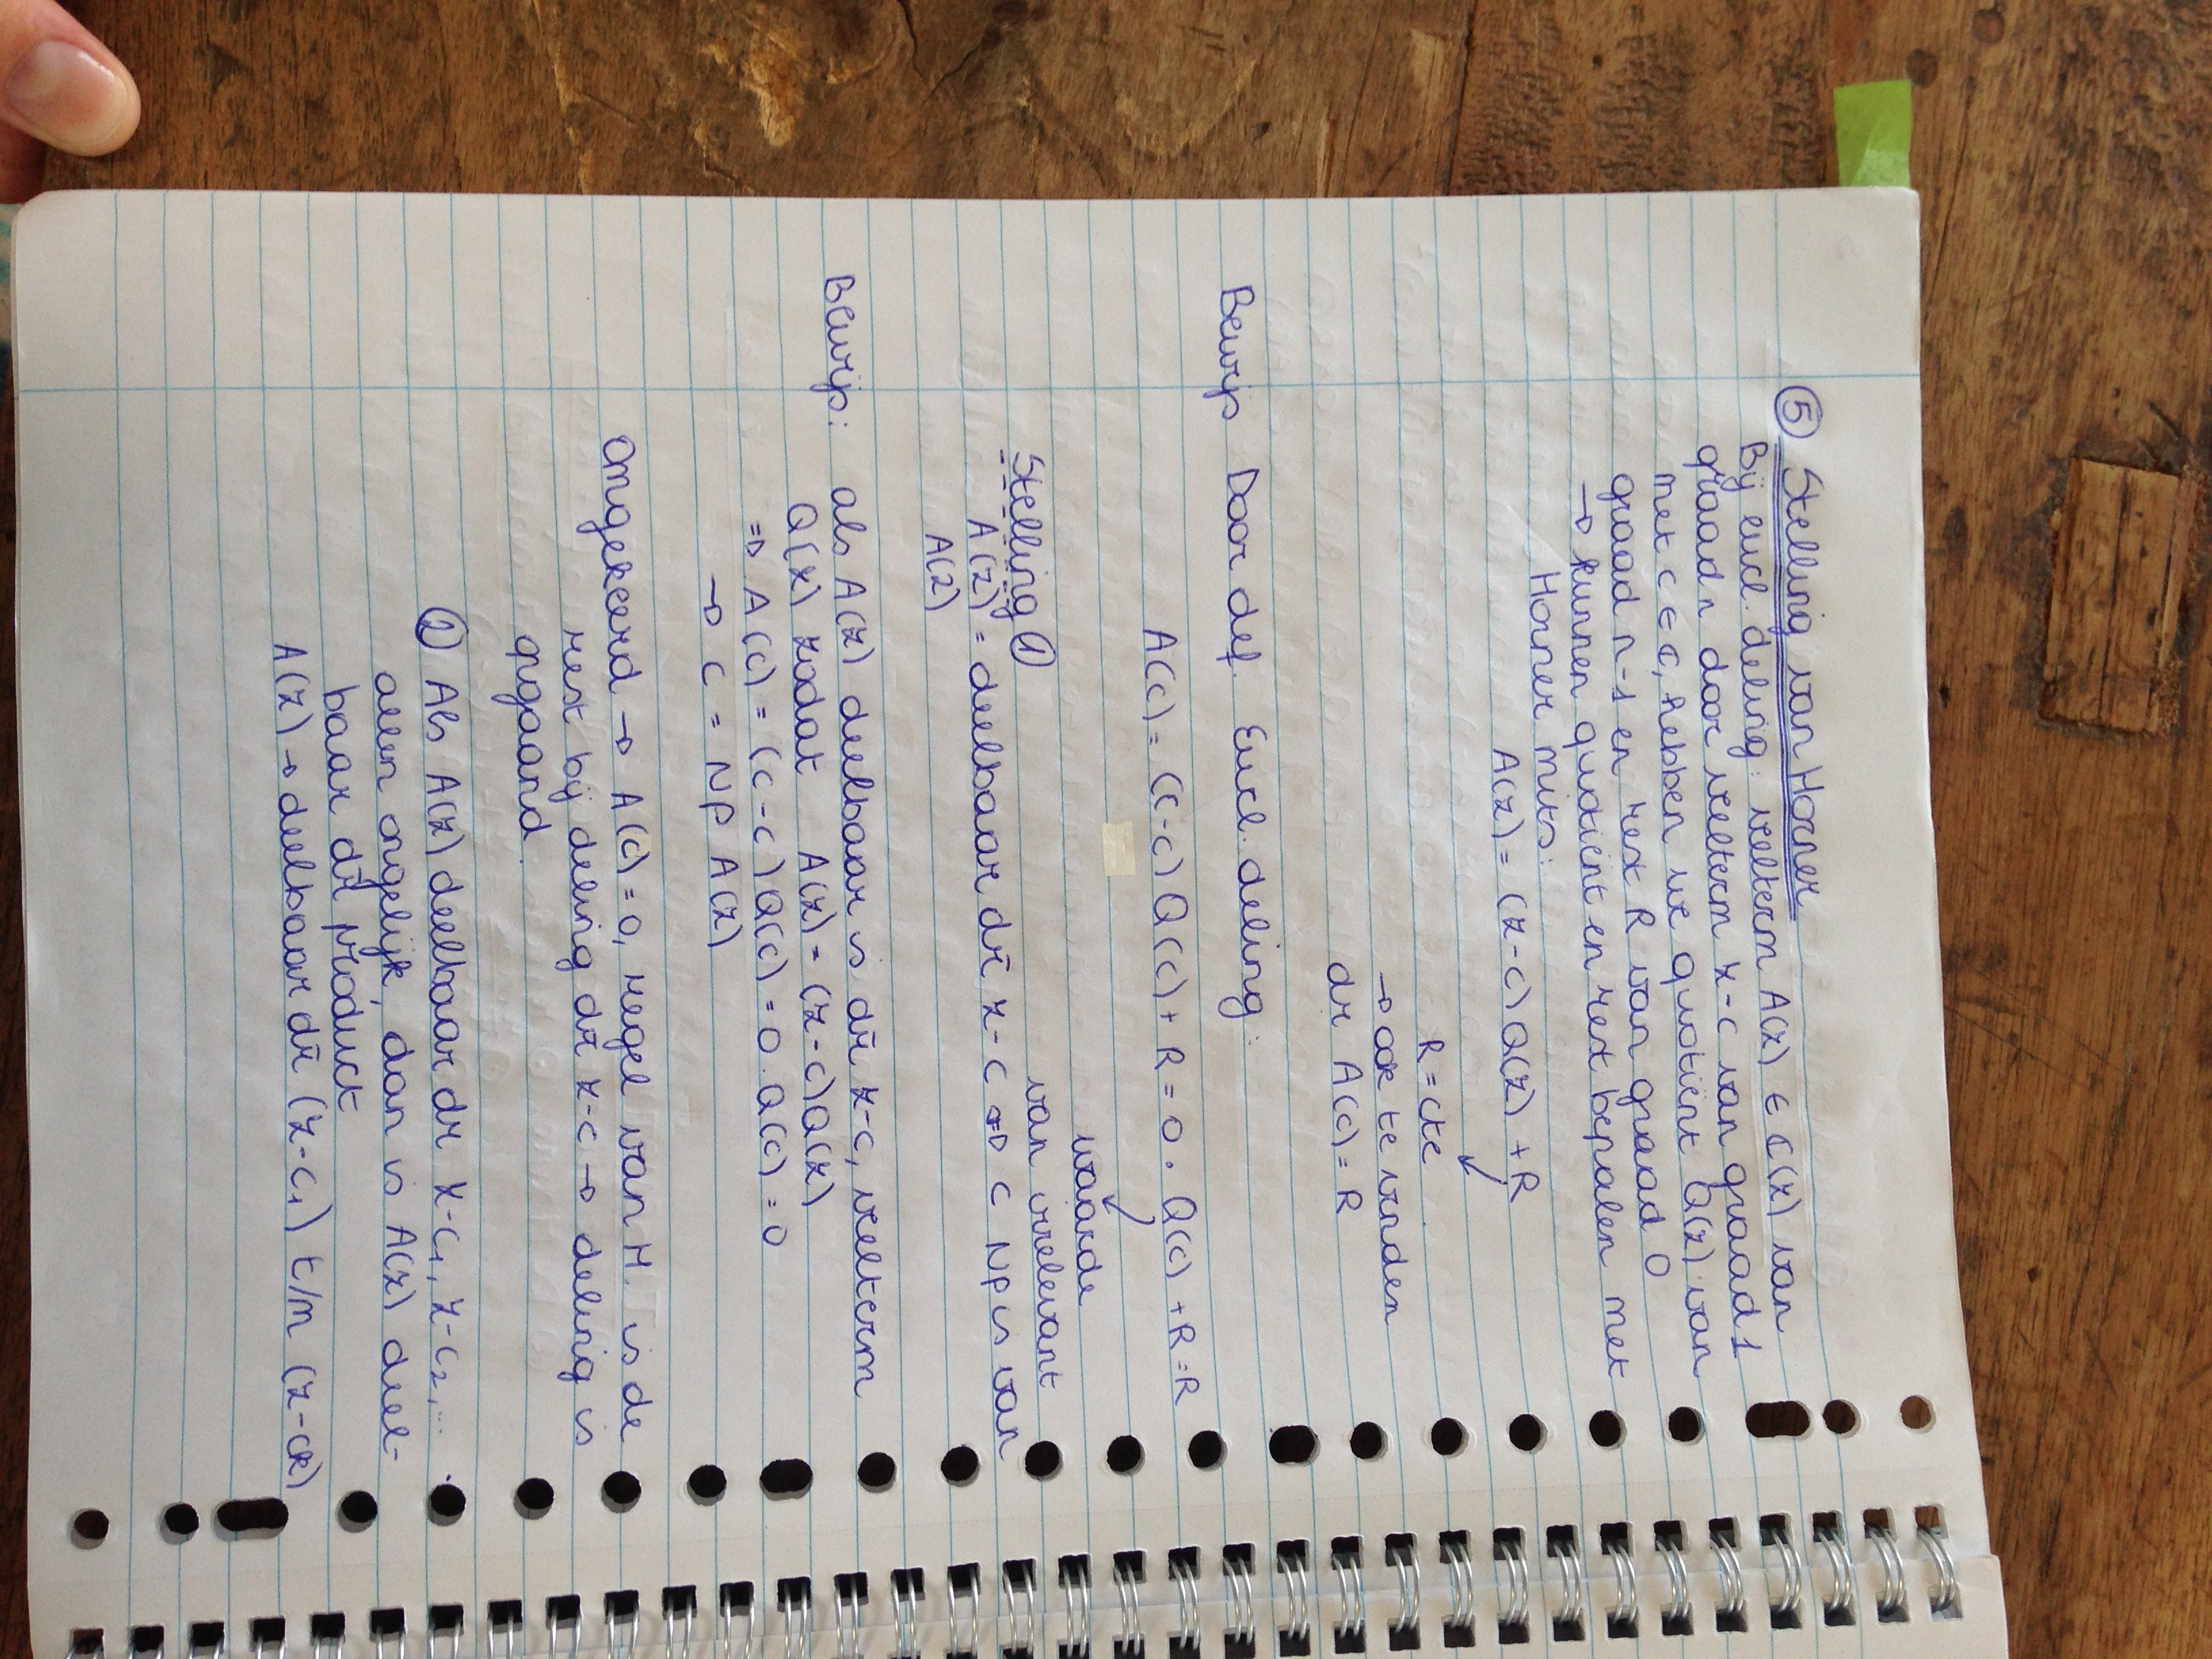 ⑤ Stelling van Horner
Bij eucl. deling: veelterm A(z) ∈ ℂ(z) van
graad n door veelterm z-c van graad 1
met c ∈ ℂ, hebben we quotiënt Q(z) van
graad n-1 en rest R van graad 0
→ kunnen quotiënt en rest bepalen met
Horner mits:
A(z) = (z-c) Q(z) + R
R = cte
→ ook te vinden
dr A(c) = R
Bewijs Door def. Eucl. deling:
A(c) = (c-c) Q(c) + R = 0 . Q(c) + R = R
waarde
van irrelevant
Stelling ①
A(z) = deelbaar dr z-c ⇔ c NP is van
A(z)
Bewijs: als A(z) deelbaar is dr z-c, veelterm
Q(z) zodat A(z) = (z-c)Q(z)
⇒ A(c) = (c-c)Q(c) = 0 . Q(c) = 0
→ c = NP A(z)
Omgekeerd → A(c) = 0, regel van H. is de
rest bij deling dr z-c → deling is
opgaand.
② Als A(z) deelbaar dr z-c₁, z-c₂, ...
allen ongelijk, dan is A(z) deel-
baar dr product
A(z) → deelbaar dr (z-c₁) t/m (z-ck)